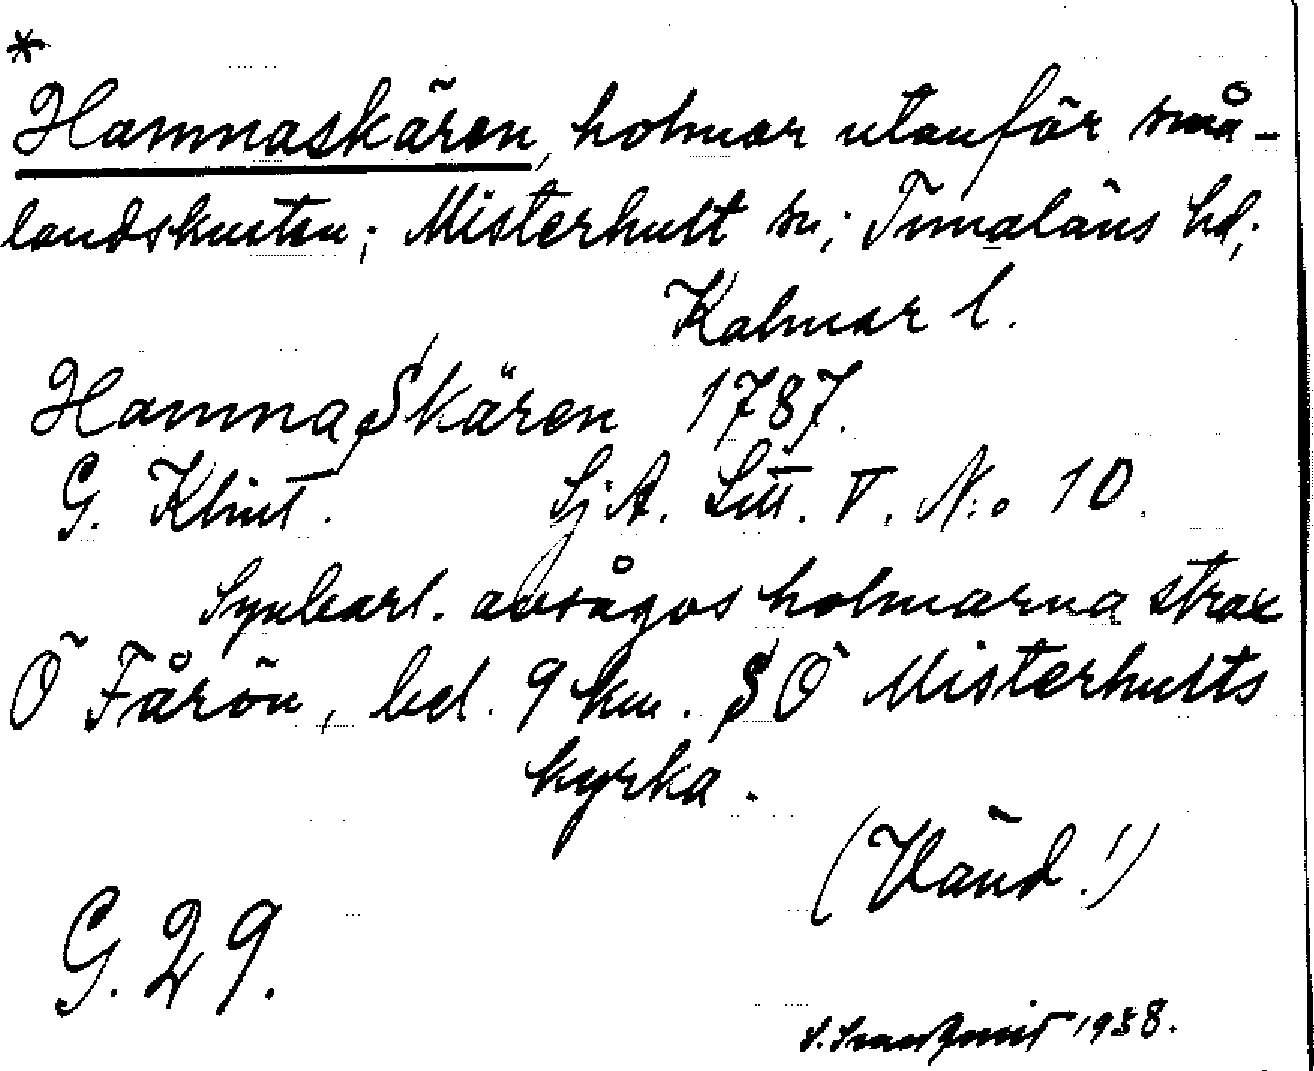 *
Hamnaskären, holmar utanför små-
landskusten; Misterhult sn; Tunaläns hd;
Kalmar l.
Hamna Skären 1787.
G. Klint. Sj.A. Litt. V. N:o 10.
Synbarl. avsågos holmarna strax
Ö Fårön, bel. 9 km. SÖ Misterhults
kyrka.
(Vänd!)
G. 29.
1938.